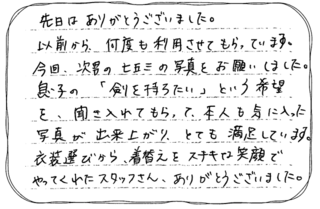 先日はありがとうございました。
以前から、何度も利用させてもらっています。
今回、次男の七五三の写真をお願いしました。
息子の「剣を持ちたい」という希望
を、聞き入れてもらって、本人も気に入った
写真が出来上がり、とても満足しています。
衣装選びから、着替えをステキな笑顔で
やってくれたスタッフさん、ありがとうございました。